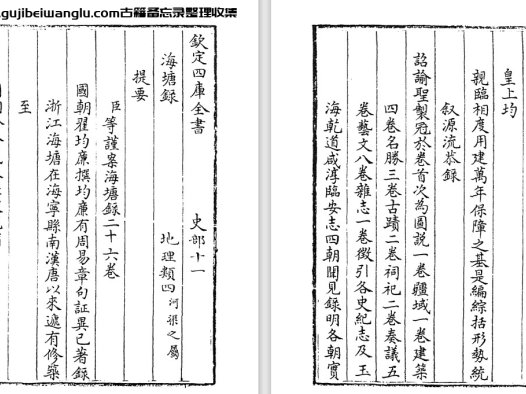 .gujibeiwanglu.com古籍备忘录整理收集
欽定四庫全書 史部十一
海塘錄 地理類四河渠之屬
提要
臣等謹案海塘錄二十六卷
國朝翟均廉撰均廉有周易章句証異已著錄
浙江海塘在海寧縣南漢唐以來遞有修築
至
皇上均
親臨相度用建萬年保障之基是編綜括形勢統
叙源流恭錄
詔諭聖製冠於卷首次為圖說一卷疆域一卷建築
四卷名勝三卷古蹟二卷祠祀二卷奏議五
卷藝文八卷雜志一卷徵引各史紀志及玉
海乾道咸淳臨安志四朝聞見錄明各朝實